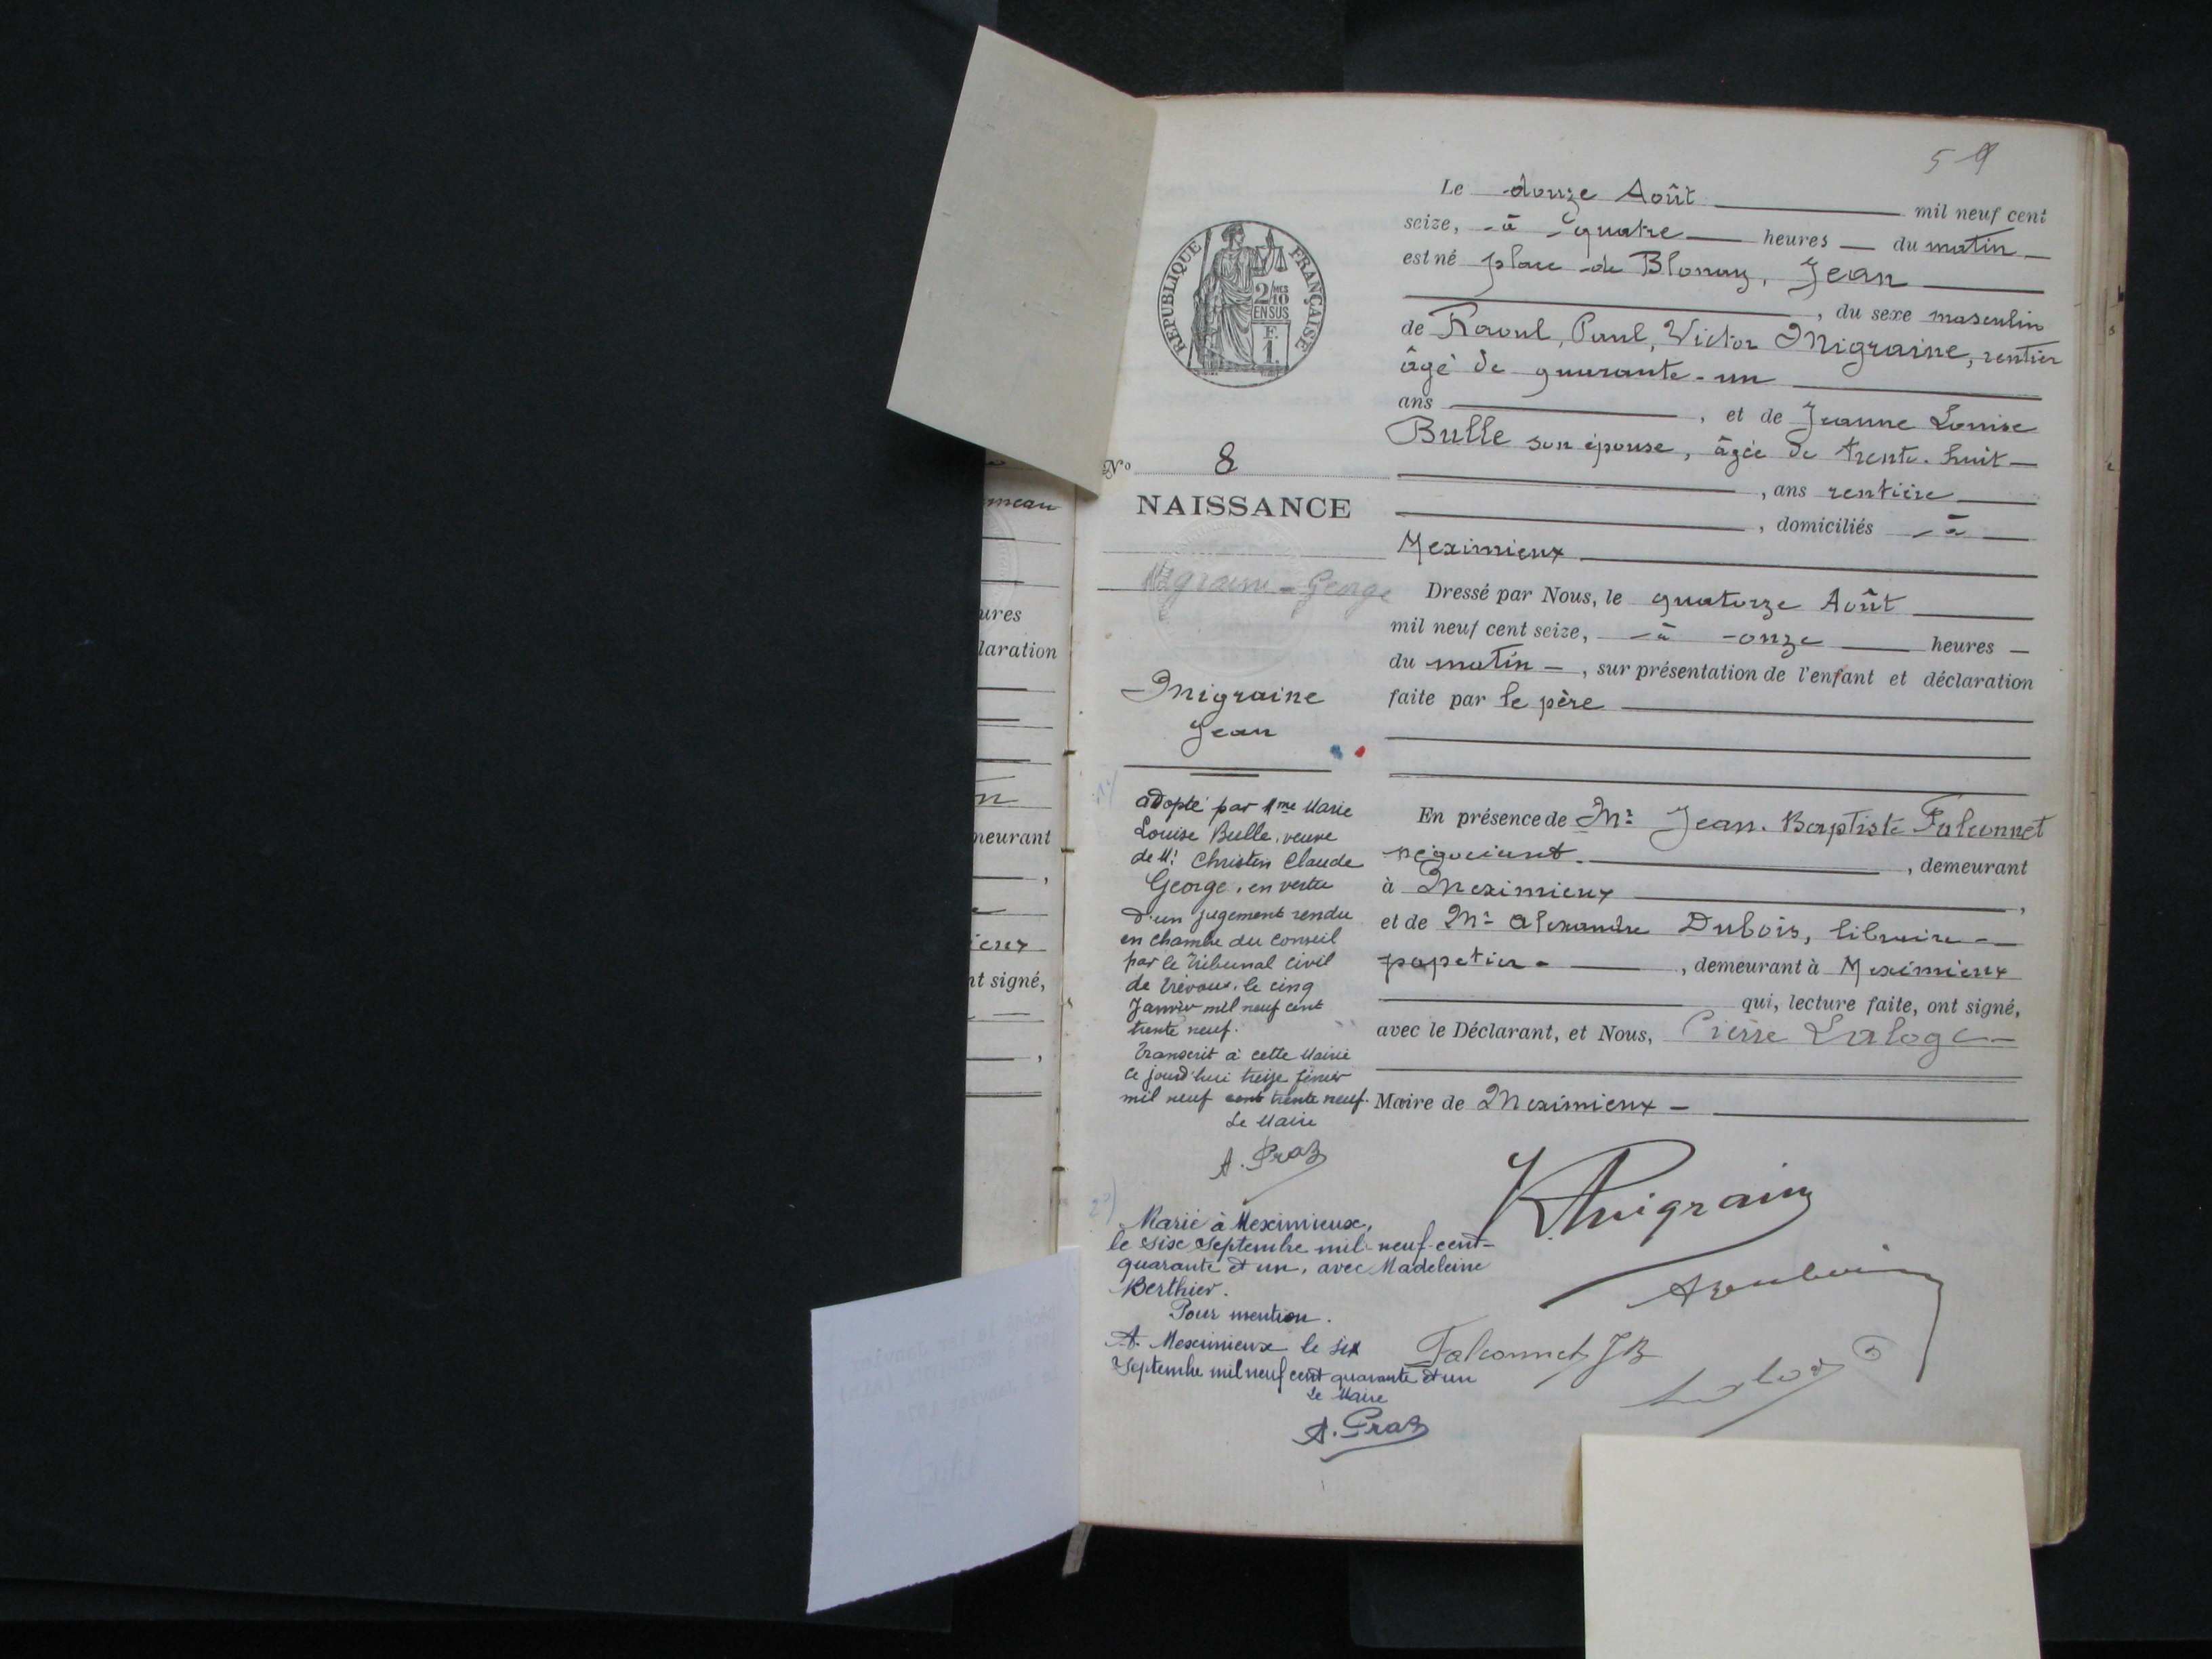 59
Le douze Août mil neuf cent
seize, à quatre heures du matin
est né place de Blonay, Jean
, du sexe masculin
de Raoul, Paul, Victor Migraine, rentier
âgé de quarante-un
ans , et de Jeanne Louise
Bulle son épouse, âgée de trente-huit
, ans rentière
, domiciliés à
Meximieux
Dressé par Nous, le quatorze Août
mil neuf cent seize, à onze heures
du matin , sur présentation de l'enfant et déclaration
faite par le père
En présence de Mr Jean-Baptiste Falconnet
négociant , demeurant
à Meximieux ,
et de Mr Alexandre Dubois, libraire-
papetier , demeurant à Meximieux
qui, lecture faite, ont signé,
avec le Déclarant, et Nous, Pierre Laloge
Maire de Meximieux
R Migraine
Falconnet JB
REPUBLIQUE FRANÇAISE
2/10 MES
EN SUS
F.
1.
N° 8
NAISSANCE
Migraine-George
Migraine
Jean
1°/
adopté par Mme Marie
Louise Bulle, veuve
de Mr Christin Claude
George, en vertu
d'un jugement rendu
en chambre du conseil
par le Tribunal civil
de Trévoux, le cinq
Janvier mil neuf cent
trente neuf.
Transcrit à cette Mairie
ce jourd'hui treize février
mil neuf cent trente neuf.
Le Maire
A. Praz
2°)
Marié à Meximieux,
le six Septembre mil-neuf-cent-
quarante et un, avec Madeleine
Berthier.
Pour mention.
A Meximieux le six
Septembre mil neuf cent quarante et un
Le Maire
A. Praz
meau
ures
laration
n
neurant
,
ieux
nt signé,
,